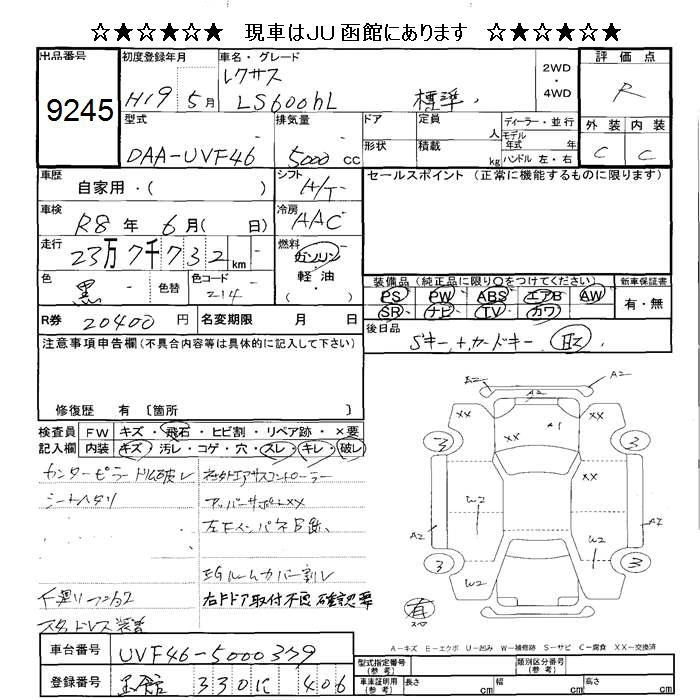 ☆★☆★☆★ 現車はJU函館にあります ☆★☆★☆★
出品番号 初度登録年月 車名・グレード 2WD 評価点
9245 H19 5月 レクサス LS600hL 標準 4WD R
型式 排気量 ドア 定員 人 ディーラー・並行 外装 内装
DAA-UVF46 5000 cc 形状 積載 kg モデル年式 年式 ハンドル 左・右 C C
車歴 自家用・( ) シフト A/T セールスポイント(正常に機能するものに限ります)
車検 R8 年 6 月( 日) 冷房 AAC
走行 23万7千732 km 燃料 ガソリン
色 黒 色替 色コード 214 軽油 ( )
装備品(純正品に限り○をつけてください) 新車保証書
PS PW ABS エアB AW 有・無
SR ナビ TV カワ
R券 20400 円 名変期限 月 日 後日品 Sキー,+カードキー 取
注意事項申告欄(不具合内容等は具体的に記入して下さい)
修復歴 有 〔箇所 〕
検査員 FW キズ・飛石・ヒビ割・リペア跡・×要
記入欄 内装 キズ・汚レ・コゲ・穴・スレ・キレ・破レ
センターピラートリム破レ 社外エアサスコントローラー
シートヘタリ アッパーサポートXX
左下インパネ
EGルームカバー割レ
右ドア取付不良 確認要
スタッドレス装着
A2 A2 A2
XX A1 XX
3 3
XX
W2 W2
A2 A2
W2
3 3
W2
有 スペア
A-キズ E-エクボ U-凹み W-補修跡 S-サビ C-腐食 XX-交換済
車台番号 UVF46-5000339
型式指定番号(参考) 類別区分番号(参考)
登録番号 函館 330 に 406
車庫証明用(参考) 長さ cm 幅 cm 高さ cm